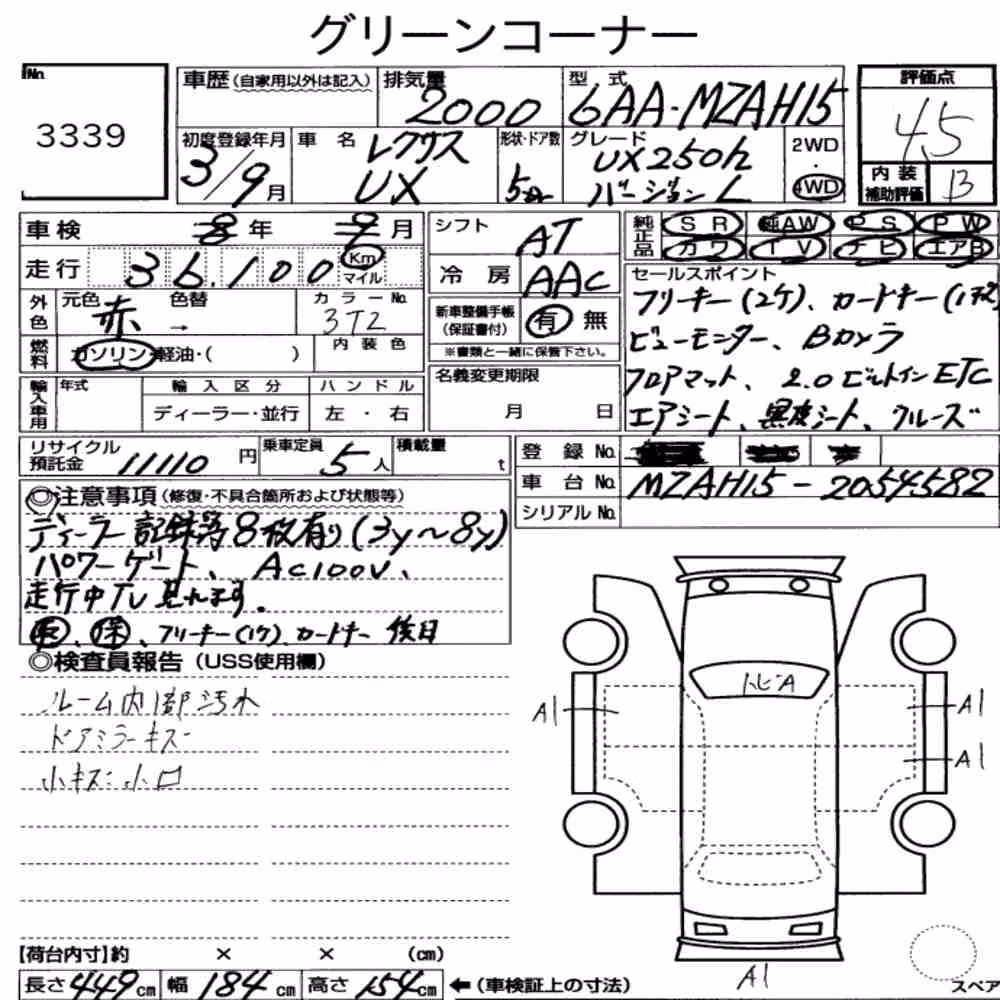 グリーンコーナー
No.
3339
車歴 (自家用以外は記入)
排気量 2000
型式 6AA-MZAH15
評価点 4.5
初度登録年月 3/9月
車名 レクサス UX
形状・ドア数 5
グレード UX250h バージョンL
2WD ・ 4WD
内装補助評価 B
車検 8年 9月
シフト AT
純正品 SR 純AW PS PW
カワ TV ナビ エアB
走行 36,100 Km マイル
冷房 AAC
セールスポイント
フリーキー(2ケ)、カードキー(1枚)
ビューモニター、Bカメラ
フロアマット、2.0ビルトインETC
エアシート、黒皮シート、クルーズ
外色 元色 赤 色替 →
カラーNo. 3T2
新車整備手帳(保証書付) 有 無
※書類と一緒に保管下さい。
燃料 ガソリン・軽油・( )
内装色
名義変更期限 月 日
輸入車用 年式
輸入区分 ディーラー・並行
ハンドル 左・右
リサイクル預託金 11110円
乗車定員 5人
積載量 t
登録No.
車台No. MZAH15-2054582
シリアルNo.
◎注意事項 (修復・不具合箇所および状態等)
ディーラー記録簿8枚有り(3y〜8y)
パワーゲート、AC100V、
走行中TV見れます。
取、保、フリーキー(1ケ)、カードキー 後日
◎検査員報告 (USS使用欄)
ルーム内部汚れ
ドアミラーキズ
小キズ小凹
トビA
A1
A1
A1
A1
【荷台内寸】約 × × (cm)
長さ449cm 幅184cm 高さ154cm ←(車検証上の寸法)
スペア